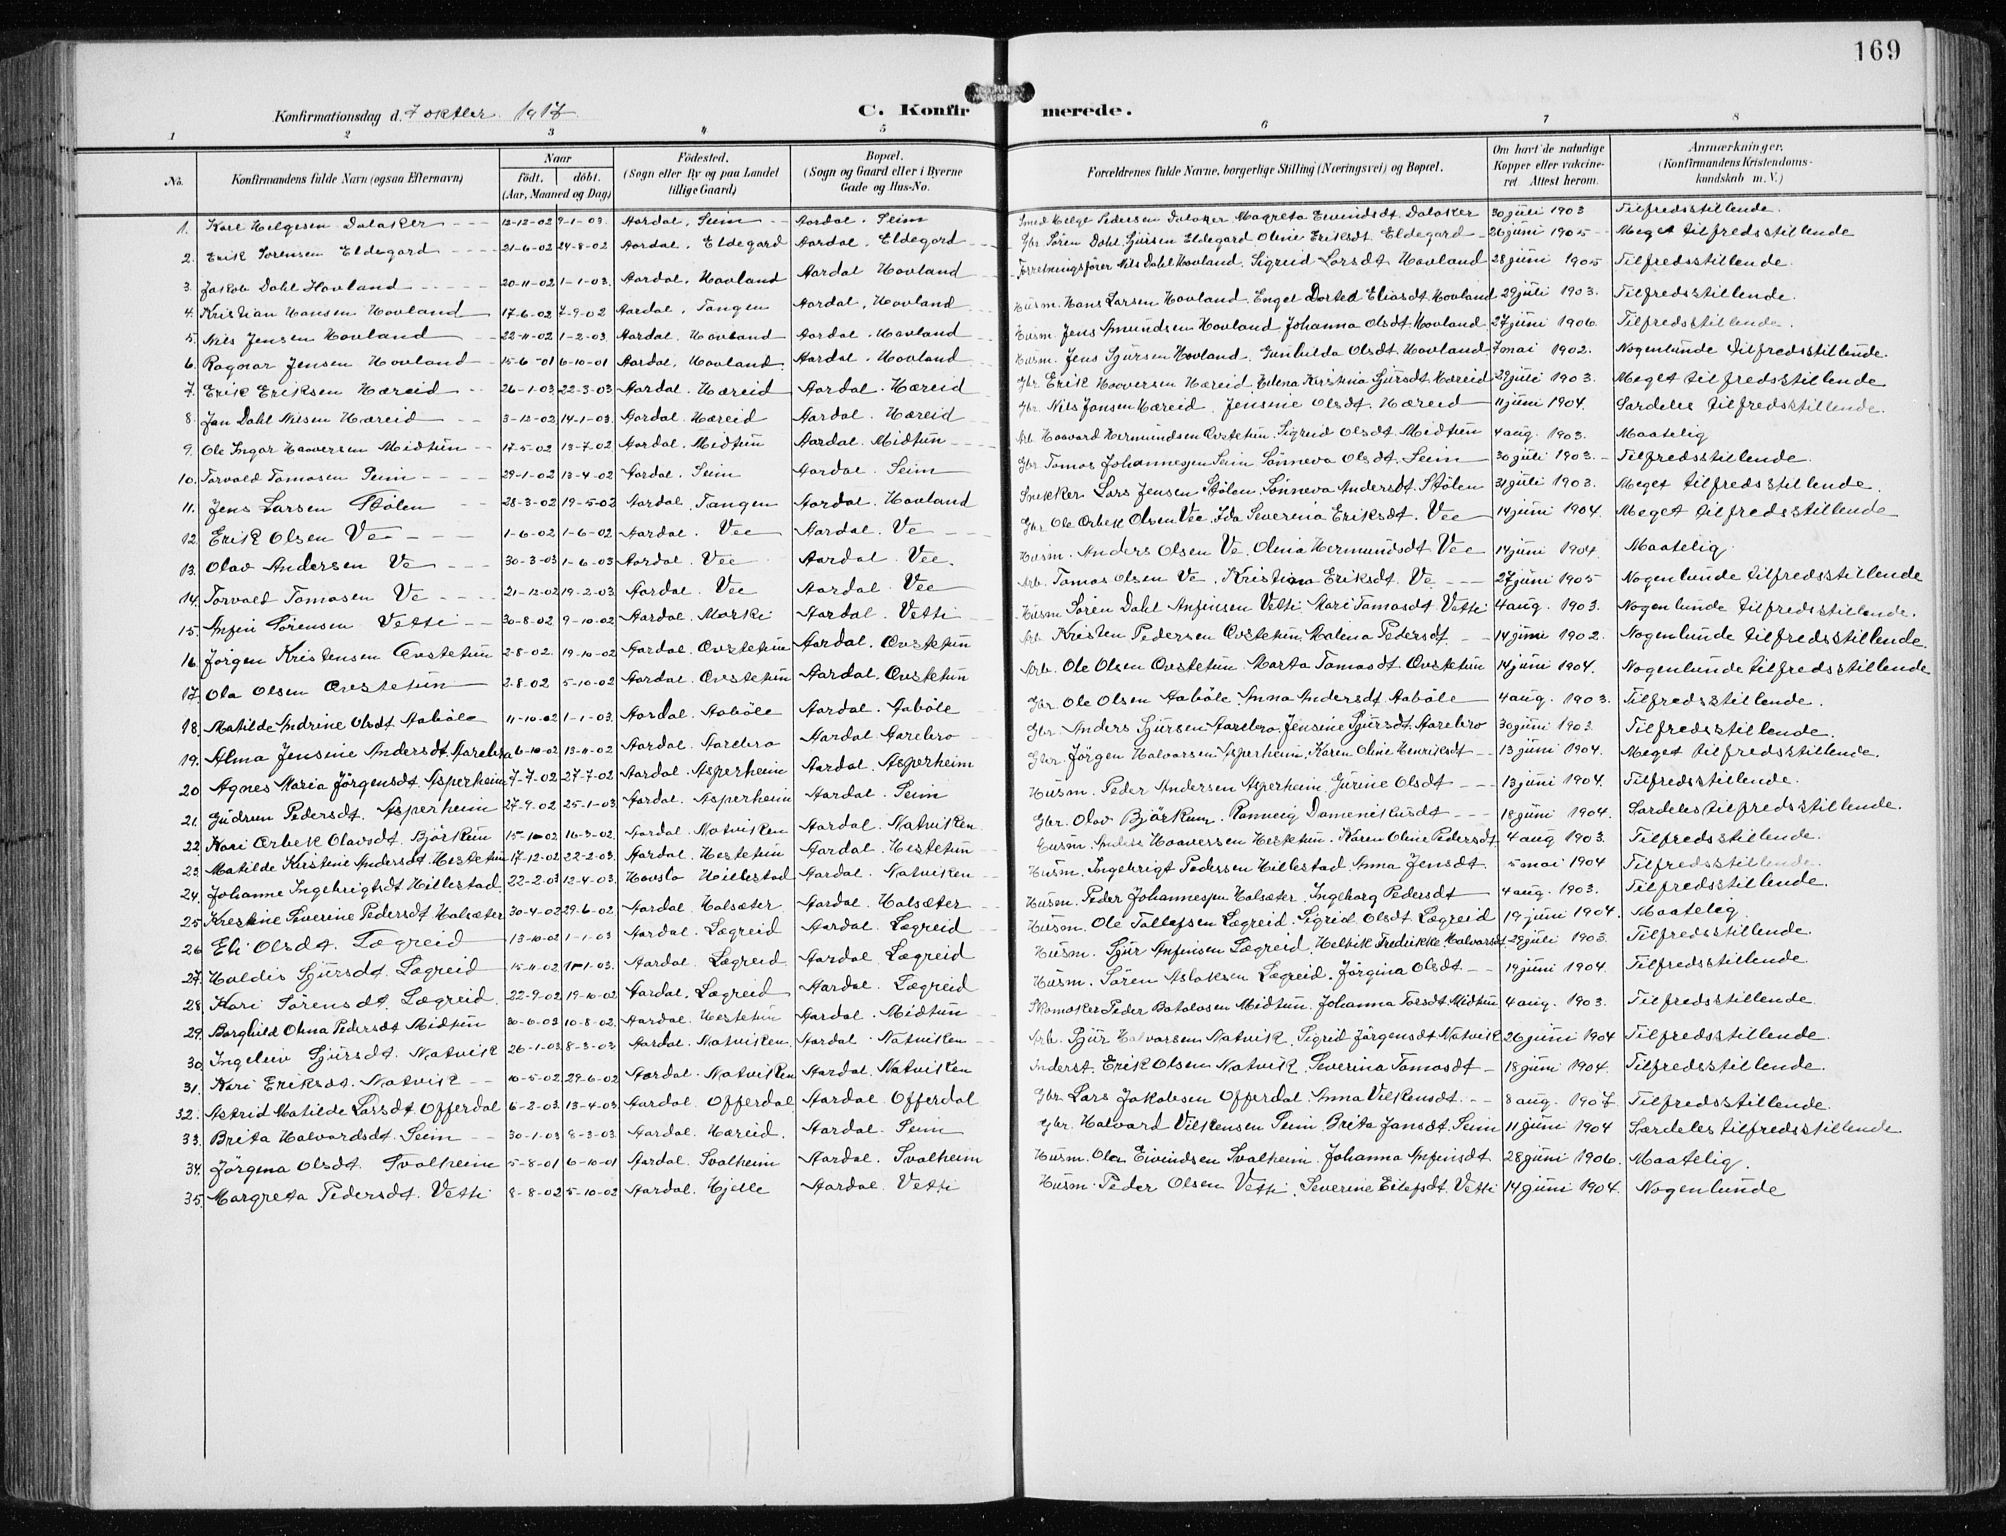 169
Konfirmationsdag d. 7 oktber. 1917. C. Konfirmerede.
1 2 3 4 5 6 7 8
No. Konfirmandens fulde Navn (ogsaa Efternavn) Naar født. døbt. (Aar, Maaned og Dag) Fødested. (Sogn eller By og paa Landet tillige Gaard) Bopæl. (Sogn og Gaard eller i Byerne Gade og Hus-No. Forældrenes fulde Navne, borgerlige Stilling (Næringsvei) og Bopæl. Om havt de naturlige Kopper eller vakcineret Attest herom. Anmærkninger. (Konfirmandens Kristendomskundskab m. V.)
1. Karl Helgesen Dalaker 13-12-02 9-1-03. Aardal. Seim Aardal. Seim Smed Helge Pedersen Dalaker Magreta Eivindsdt. Dalaker 30 juli 1903 Tilfredsstillende.
2. Erik Sørensen Eldegard 21-6-02 24-8-02 Aardal. Eldegard Aardal. Eldegard Gbr Søren Dahl Sjursen Eldegard Oline Eriksdt. Eldegard 26 juni 1905 Meget tilfredsstillende
3. Jakob Dahl Hovland 20-11-02 1-1-03. Aardal. Hovland Aardal Hovland Forretningsfører Nils Dahl Hovland. Sigrid Larsdt Hovland 28 juni 1905 Tilfredsstillende.
4. Kristian Hansen Hovland 17-6-02 7-9-02 Aardal. Tangen Aardal. Hovland Husm. Hans Larsen Hovland. Engel Dorted Eliasdt. Hovland 29 juli 1903. Tilfredsstillende.
5. Nils Jensen Hovland 22-11-02 1-2-03. Aardal. Hovland Aardal. Hovland Husm. Jens Amundsen Hovland Johanna Olsdt. Hovland 27 juni 1906. Tilfredsstillende.
6. Ragnar Jensen Hovland 15-6-01 6-10-01 Aardal. Hovland Aardal. Hovland Husm. Jens Sjursen Hovland. Gunhilda Olsdt. Hovland 7 mai 1902. Nogenlunde tilfredsstillende.
7. Erik Eriksen Hæreid 26-1-03 22-3-03 Aardal. Hæreid Aardal. Hæreid Gbr. Erik Haaversen Hæreid Helena Kristina Sjursdt. Hæreid 29 juli 1903. Meget tilfredsstillende
8. Jan Dahl Nilsen Hæreid 3-12-02 14-1-03. Aardal. Hæreid Aardal. Hæreid Gbr. Nils Jansen Hæreid. Jensine Olsdt. Hæreid 11 juni 1904. Særdeles tilfredsstillende.
9. Ole Ingar Haaversen Midtun 17-5-02 13-7-02 Aardal. Midtun Aardal. Midtun Arb. Haavard Hermundsen Øvstetun. Sigrid Olsdt. Midtun 4 aug. 1903. Maatelig
10. Torvald Tomasen Seim 29-1-02 13-4-02 Aardal. Seim Aardal. Seim Gbr Tomas Johannessen Seim Sønneva Olsdt. Seim 30 juli 1903. Tilfredsstillende.
11. Jens Larsen Stølen 28-3-02 19-5-02 Aardal. Tangen Aardal. Hovland Snekker Lars Jensen Stølen. Sønneva Andersdt. Stølen 31 juli 1903. Meget tilfredsstillende.
12. Erik Olsen Ve 1-6-02 1-6-02 Aardal. Vee Aardal. Ve Gbr. Ole Orbek Olsen Vee. Ida Severina Eriksdt. Vee 14 juni 1904. Meget tilfredsstillende
13. Olav Andersen Ve 30-3-03 1-6-03 Aardal. Vee Aardal. Vee. Husm. Anders Olsen Ve. Olina Hermundsdt Vee 14 juni 1904. Maatelig.
14. Torvald Tomasen Ve 21-12-02 19-2-03 Aardal. Vee Aardal. Vee Arb. Tomas Olsen Ve. Kristina Eriksdt. Ve 27 juni 1905 Nogenlunde tilfredsstillende
15. Anfin Sørensen Vetti 30-8-02 9-10-02 Aardal. Morki Aardal. Vetti Husm Søren Dahl Anfinsen Vetti Mari Tomasdt Vetti 4 aug. 1903. Nogenlunde tilfredsstillende.
16. Jörgen Kristensen Øvstetun 2-8-02. 19-10-02 Aardal. Øvstetun Aardal. Øvstetun Arb. Kristen Pedersen Øvstetun. Malena Pedersdt. 14 juni 1902. Nogenlunde tilfredsstillende.
17. Ola Olsen Øvstetun 2-8-02 5-10-02 Aardal. Øvstetun Aardal. Øvstetun Arb. Ole Olsen Øvstetun. Marta Tomasdt. Øvstetun 14 juni 1904. Nogenlunde tilfredsstillende
18. Matilde Andrine Olsdt Aabøle 11-10-02 1-1-03. Aardal. Aabøle Aardal. Aabøle Gbr. Ole Olsen Aabøle. Anna Andersdt. Aabøle 4 aug. 1903. Tilfredsstillende.
19. Alma Jensine Andersdt. Aarebro 6-10-02 13-11-02 Aardal. Aarebro Aardal Aarebro Gbr. Anders Sjursen Aarebro. Jensine Sjursdt. Aarebro 30 juni 1903. Tilfredsstillende.
20 Agnes Maria Jörgensdt Asperheim 7-7-02 27-7-02 Aardal. Asperheim Aardal. Asperheim Gbr. Jörgen Halvarsen Asperheim. Karen Oline Henriksdt 13 juni 1904. Meget tilfredsstillende.
21. Gudrun Pedersdt. Asperheim 27-9-02 25-1-03 Aardal. Asperheim Aardal. Seim Husm. Peder Andersen Asperheim. Gurine Olsdt 13 juni 1904. Tilfredsstillende.
22 Kari Orbek Olavsdt Björkum 15-1-02 16-3-02. Aardal. Natviken Aardal. Natviken. Gbr. Olav Björkum. Ranneig Domenikusdt 18 juni 1904. Særdeles tilfredsstillende.
23. Matilde Kirstine Andersdt. Hestetun 17-12-02 22-2-03. Aardal. Hestetun Aardal. Hestetun Husm. Anders Haaversen Hestetun. Karen Oline Pedersdt 4 aug 1903. Tilfredsstillende.
24. Johanne Ingebrigtsdt Hillestad. 22-2-03 12-4-03. Hovslo Hillestad Aardal. Natviken Husm. Ingebrigt Pedersen Hillestad. Anna Jensdt. 5 mai 1904 Tilfredsstillende.
25 Kirstine Severine Pedersdt Halsæter 30-4-02 29-6-02 Aardal. Halsæter Aardal. Halsæter Husm. Peder Johannessen Halsæter. Ingeborg Pedersdt 4 aug. 1903. Tilfredsstillende.
26 Eli Olsdt. Lægreid 13-10-02 1-1-03 Aardal. Lægreid Aardal. Lægreid Husm. Ole Tollefsen Lægreid. Sigrid Olsdt Lægreid 19 juni 1904. Maatelig.
27. Haldis Sjursdt. Lægreid 15-11-02 1-1-03. Aardal. Lægreid Aardal. Lægreid Husm. Sjur Anfinsen Lægreid. Helvik Fredrikke Halvarsdt 29 juli 1903. Tilfredsstillende.
28. Kari Sørensdt. Lægreid. 22-9-02 19-10-02 Aardal. Lægreid Aardal. Lægreid Husm. Søren Aslaksen Lægreid. Jörgina Olsdt 19 juni 1904. Tilfredsstillende.
29. Borghild Olina Pedersdt Midtun 30-6-02 10-8-02. Aardal. Hestetun Aardal. Midtun Skomaker Peder Botolvsen Midtun. Johanna Torsdt. Midtun 4 aug. 1903. Tilfredsstillende.
30. Ingeleiv Sjursdt. Natvik 26-1-03 8-3-03 Aardal. Natviken. Aardal. Natviken Arb. Sjur Halvarsen Natvik. Sigrid Jörgensdt Natvik 26 juni 1904 Tilfredsstillende.
31. Kari Eriksdt. Natvik 10-5-02 29-6-02 Aardal. Natviken Aardal. Natviken Inderst. Erik Olsen Natvik. Severina Tomasdt 18 juni 1904. Tilfredsstillende.
32. Astrid Matilde Larsdt Offerdal 6-2-03. 13-4-03 Aardal. Offerdal Aardal. Offerdal Gbr. Lars Jakobsen Offerdal Anna Vilkensdt. 8 aug. 1907. Tilfredsstillende.
33. Brita Halvardsdt. Seim 30-1-03 8-3-03. Aardal. Hæreid. Aardal. Seim Gbr. Halvard Vilkensen Seim. Brita Jansdt. Seim 11 juni 1904 Særdeles tilfredsstillende
34. Jörgina Olsdt. Svalheim 5-8-01 6-10-01 Aardal. Svalheim Aardal. Svalheim Husm. Ola Eivindsen Svalheim. Johanna Anfinsdt. 28 juni 1906. Maatelig.
35. Margreta Pedersdt. Vetti 8-8-02 5-10-02 Aardal. Hjelle Aardal. Vetti Husm. Peder Olsen Vetti. Severine Eilefsdt. Vetti 14 juni 1904. Nogenlunde